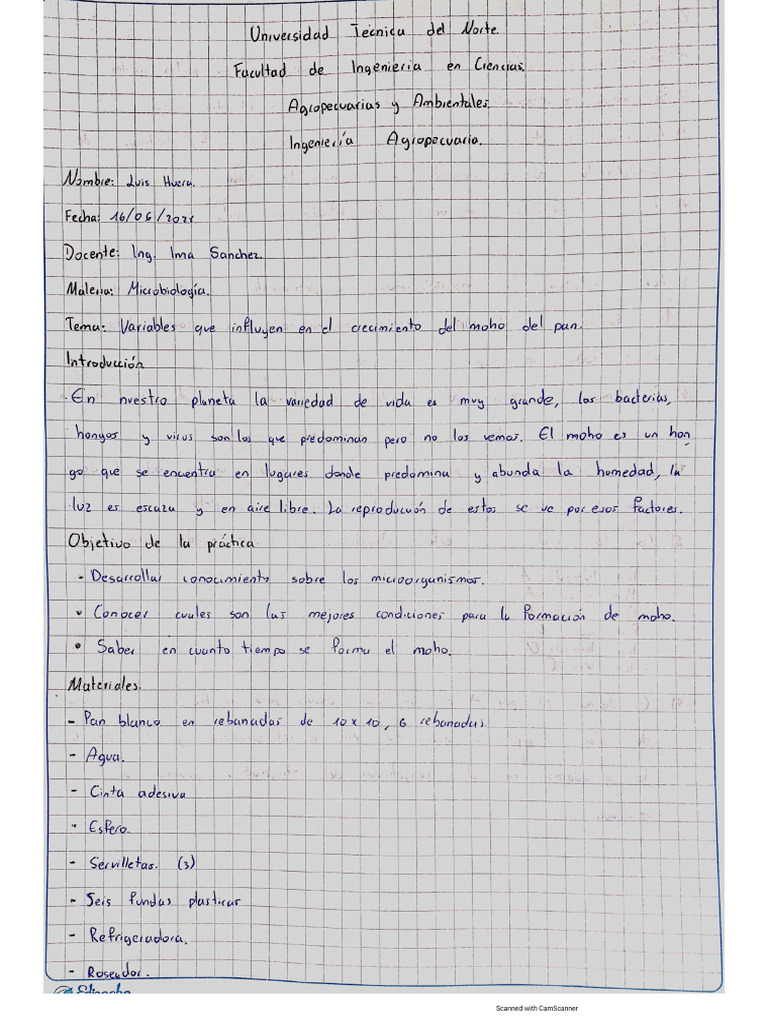 Universidad Técnica del Norte.
Facultad de Ingeniería en Ciencias.
Agropecuarias y Ambientales.
Ingeniería Agropecuaria.
Nombre: Luis Huera.
Fecha: 16/06/2021
Docente: Ing. Ima Sanchez.
Materia: Microbiología.
Tema: Variables que influyen en el crecimiento del moho del pan.
Introducción
En nuestro planeta la variedad de vida es muy grande, las bacterias,
hongos y virus son los que predominan pero no los vemos. El moho es un hon
go que se encuentra en lugares donde predomina y abunda la humedad, la
luz es escaza y en aire libre. La reproducción de estos se ve por esos factores.
Objetivo de la práctica
- Desarrollar conocimiento sobre los microorganismos.
• Conocer cuales son las mejores condiciones para la formación de moho.
• Saber en cuanto tiempo se forma el moho.
Materiales.
- Pan blanco en rebanadas de 10 x 10, 6 rebanadas.
- Agua.
- Cinta adesiva
- Esfero.
- Servilletas. (3)
- Seis fundas plasticas
- Refrigeradora.
- Roseador.
Scanned with CamScanner